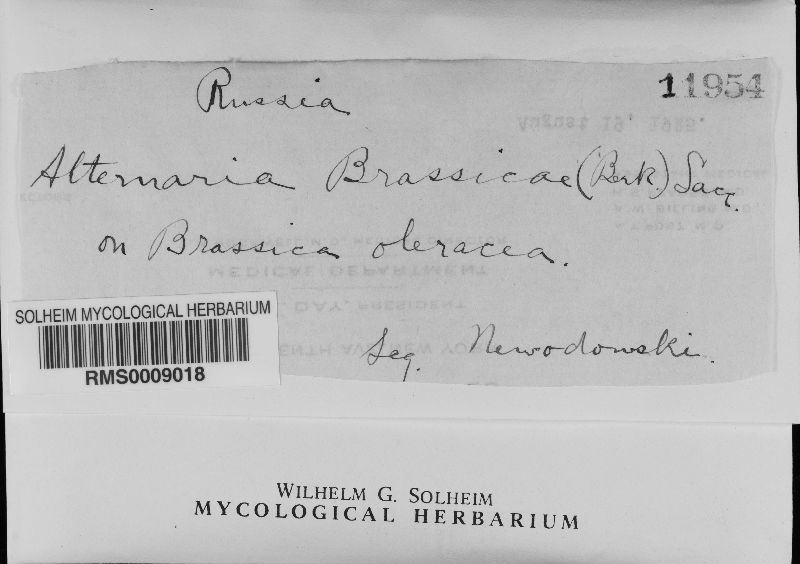 Russia
11954
Alternaria Brassicae (Berk) Sacc.
on Brassica oleracea.
SOLHEIM MYCOLOGICAL HERBARIUM
RMS0009018
Leg. Newodowski.
WILHELM G. SOLHEIM
MYCOLOGICAL HERBARIUM